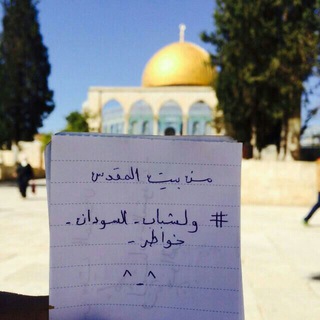 من بيت المقدس
# ولشباب - السودان -
خواطر -
^_^